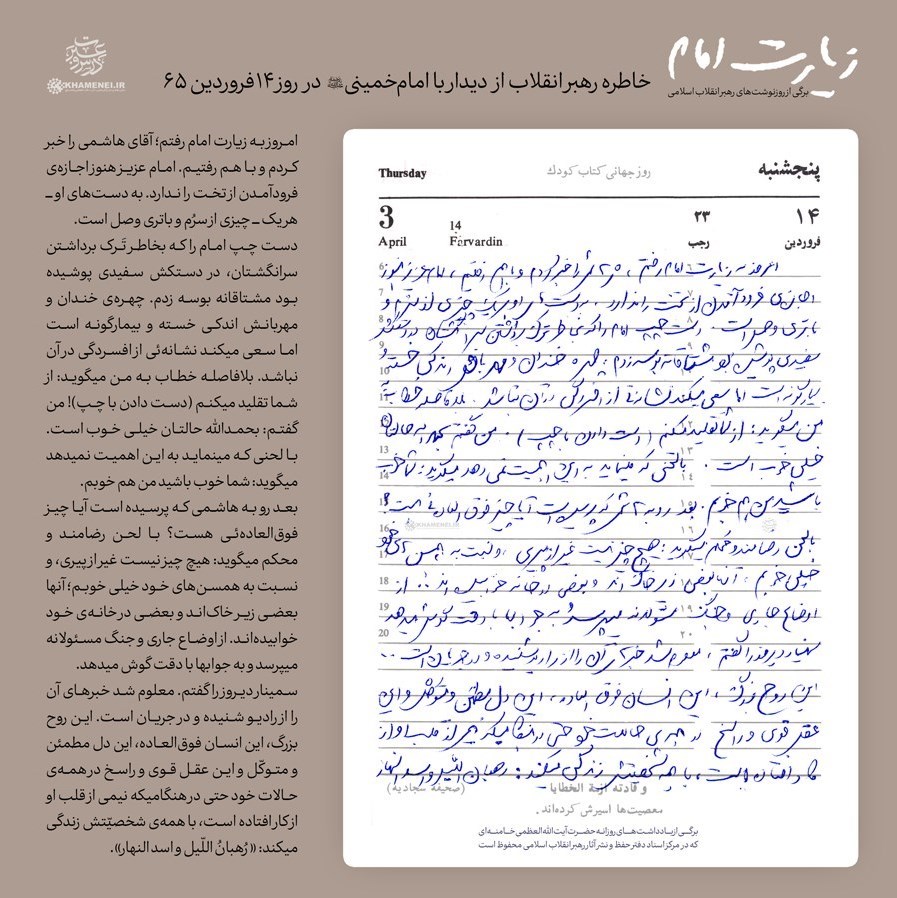 زیارت امام
برگی از روزنوشت‌های رهبر انقلاب اسلامی
خاطره رهبر انقلاب از دیدار با امام خمینی در روز ۱۴ فروردین ۶۵
KHAMENEI.IR
امروز به زیارت امام رفتم؛ آقای هاشمی را خبر
کردم و با هم رفتیم. امام عزیز هنوز اجازه‌ی
فرود آمدن از تخت را ندارد. به دست‌های او ـ
هر یک ـ چیزی از سرُم و باتری وصل است.
دست چپ امام را که بخاطر تَرک برداشتن
سرانگشتان، در دستکش سفیدی پوشیده
بود مشتاقانه بوسه زدم. چهره‌ی خندان و
مهربانش اندکی خسته و بیمارگونه است
اما سعی میکند نشانه‌ئی از افسردگی در آن
نباشد. بلافاصله خطاب به من میگوید: از
شما تقلید میکنم (دست دادن با چپ)! من
گفتم: بحمدالله حالتان خیلی خوب است.
با لحنی که مینماید به این اهمیت نمیدهد
میگوید: شما خوب باشید من هم خوبم.
بعد رو به هاشمی که پرسیده است آیا چیز
فوق‌العاده‌ئی هست؟ با لحن رضامند و
محکم میگوید: هیچ چیز نیست غیر از پیری، و
نسبت به همسن‌های خود خیلی خوبم؛ آنها
بعضی زیر خاک‌اند و بعضی در خانه‌ی خود
خوابیده‌اند. از اوضاع جاری و جنگ مسئولانه
میپرسد و به جوابها با دقت گوش میدهد.
سمینار دیروز را گفتم. معلوم شد خبرهای آن
را از رادیو شنیده و در جریان است. این روح
بزرگ، این انسان فوق‌العاده، این دل مطمئن
و متوکّل و این عقل قوی و راسخ در همه‌ی
حالات خود حتی در هنگامیکه نیمی از قلب او
از کار افتاده است، با همه‌ی شخصیّتش زندگی
میکند: «رُهبانُ اللّیل و اسد النهار».
پنجشنبه
روز جهانی کتاب کودک
Thursday
۱۴
فروردین
۲۳
رجب
14
Farvardin
3
April
امروز به زیارت امام رفتم، هاشمی را خبر کردم و با هم رفتیم، امام عزیز هنوز
اجازه‌ی فرود آمدن از تخت را ندارد. به دست‌های او هر یک چیزی از سرم و
باتری وصل است. دست چپ امام را که بخاطر ترک برداشتن سرانگشتان در دستکش
سفیدی پوشیده بود مشتاقانه بوسه زدم. چهره خندان و مهربانش اندکی خسته و
بیمارگونه است اما سعی میکند نشانه‌ئی از افسردگی در آن نباشد. بلافاصله خطاب به
من میگوید: از شما تقلید میکنم (دست دادن با چپ). من گفتم بحمدالله حالتان
خیلی خوب است. با لحنی که مینماید به این اهمیت نمی‌دهد میگوید: شما خوب
باشید من هم خوبم. بعد رو به هاشمی که پرسیده است آیا چیز فوق‌العاده‌ئی هست؟
با لحن رضامند و محکم میگوید: هیچ چیز نیست غیر از پیری، و نسبت به همسن‌های خود
خیلی خوبم، آنها بعضی زیر خاک‌اند و بعضی در خانه خوابیده‌اند... از
اوضاع جاری و جنگ مسئولانه میپرسد و به جوابها با دقت گوش میدهد
سمینار دیروز را گفتم، معلوم شد خبرهای آن را از رادیو شنیده و در جریان است...
این روح بزرگ، این انسان فوق‌العاده، این دل مطمئن و متوکل و این
عقل قوی و راسخ در همه‌ی حالات خود حتی در هنگامیکه نیمی از قلب او از
کار افتاده است، با همه شخصیتش زندگی میکند: رهبان اللیل و اسد النهار
و قادته ازمة الخطایا (صحیفه سجادیه)
معصیت‌ها اسیرش کرده‌اند.
برگی از یادداشت‌های روزانه حضرت آیت‌الله‌العظمی خامنه‌ای
که در مرکز اسناد دفتر حفظ و نشر آثار رهبر انقلاب اسلامی محفوظ است